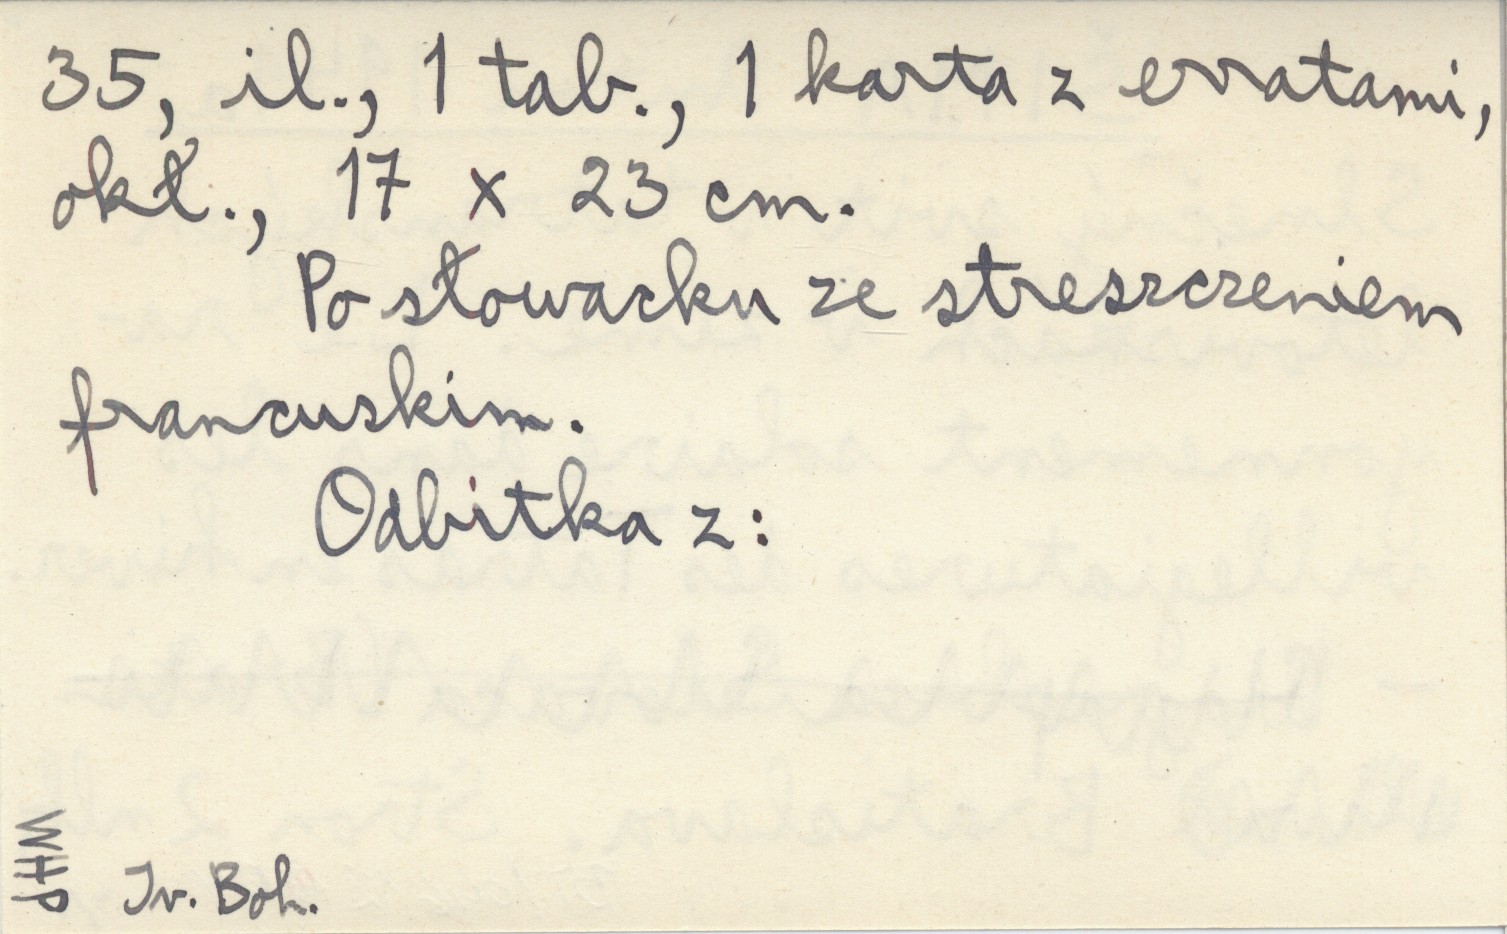 35, il., 1 tab., 1 karta z erratami,
okł., 17 x 23 cm.
Po słowacku ze streszczeniem
francuskim.
Odbitka z:
WHP
Iv. Boh.